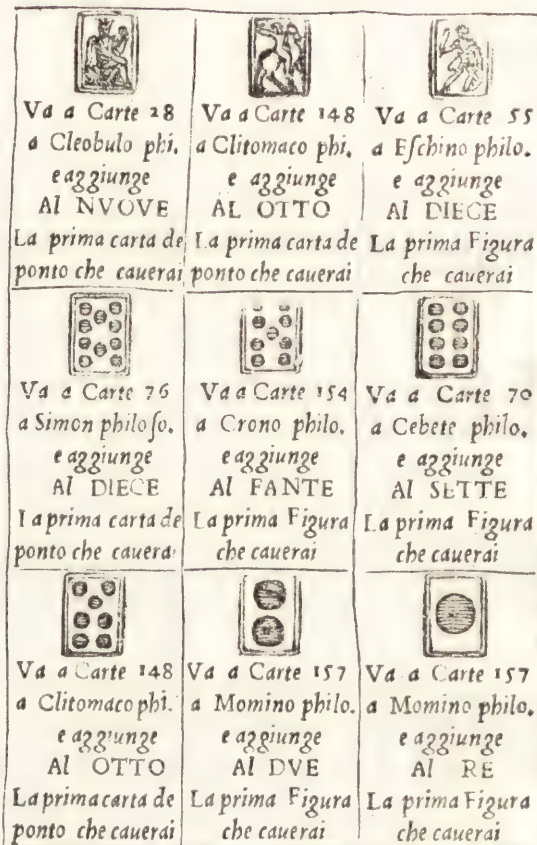 Va a Carte 28
a Cleobulo phi.
e aggiunge
Al NVOVE
La prima carta de
ponto che cauerai
Va a Carte 148
a Clitomaco phi.
e aggiunge
AL OTTO
La prima carta de
ponto che cauerai
Va a Carte 55
a Eſchino philo.
e aggiunge
Al DIECE
La prima Figura
che cauerai
Va a Carte 76
a Simon philoſo.
e aggiunge
Al DIECE
La prima carta de
ponto che cauera
Va a Carte 154
a Crono philo.
e aggiunge
Al FANTE
La prima Figura
che cauerai
Va a Carte 70
a Cebete philo.
e aggiunge
Al SETTE
La prima Figura
che cauerai
Va a Carte 148
a Clitomaco phi.
e aggiunge
Al OTTO
La prima carta de
ponto che cauerai
Va a Carte 157
a Momino philo.
e aggiunge
Al DVE
La prima Figura
che cauerai
Va a Carte 157
a Momino philo.
e aggiunge
Al RE
La prima Figura
che cauerai